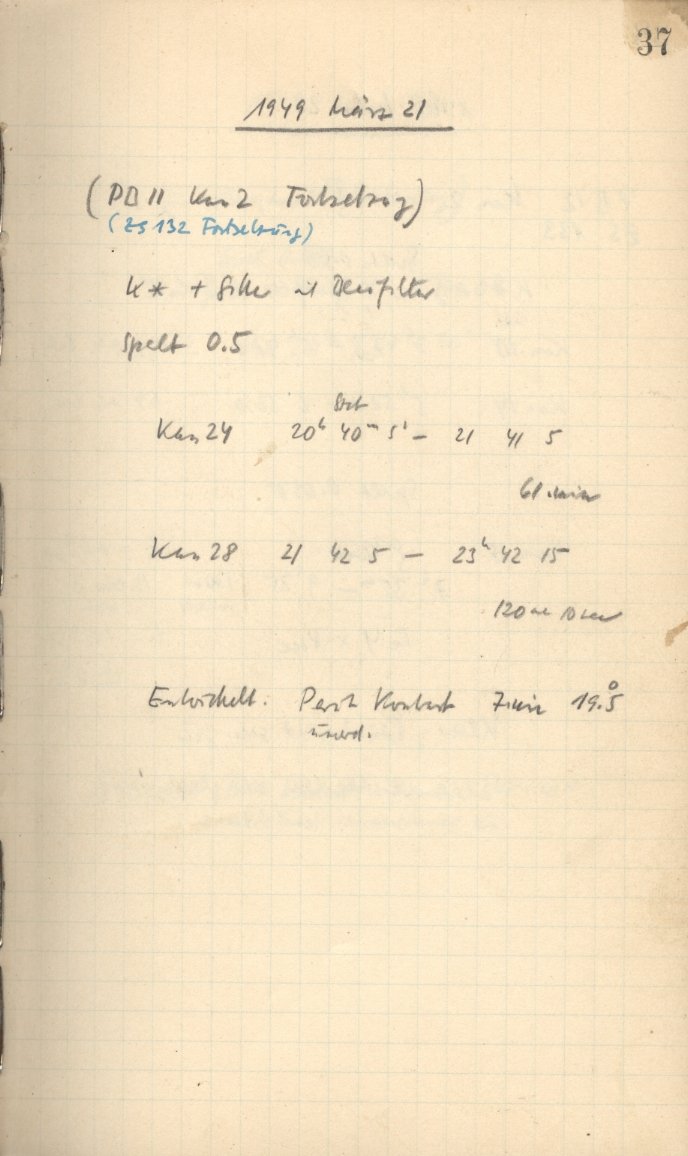 37
1949 März 21
(PB II Kas 2 Fortsetzung)
(ZS 132 Fortsetzung)
K* + Gitter mit Blaufilter
Spalt 0.5
Start
Kas 24 20h 40m 5s – 21 41 5
61 min
Kas 28 21 42 5 – 23h 42 15
120 min 10 sec
Entwickelt. Kontrast 7 min 19.°5